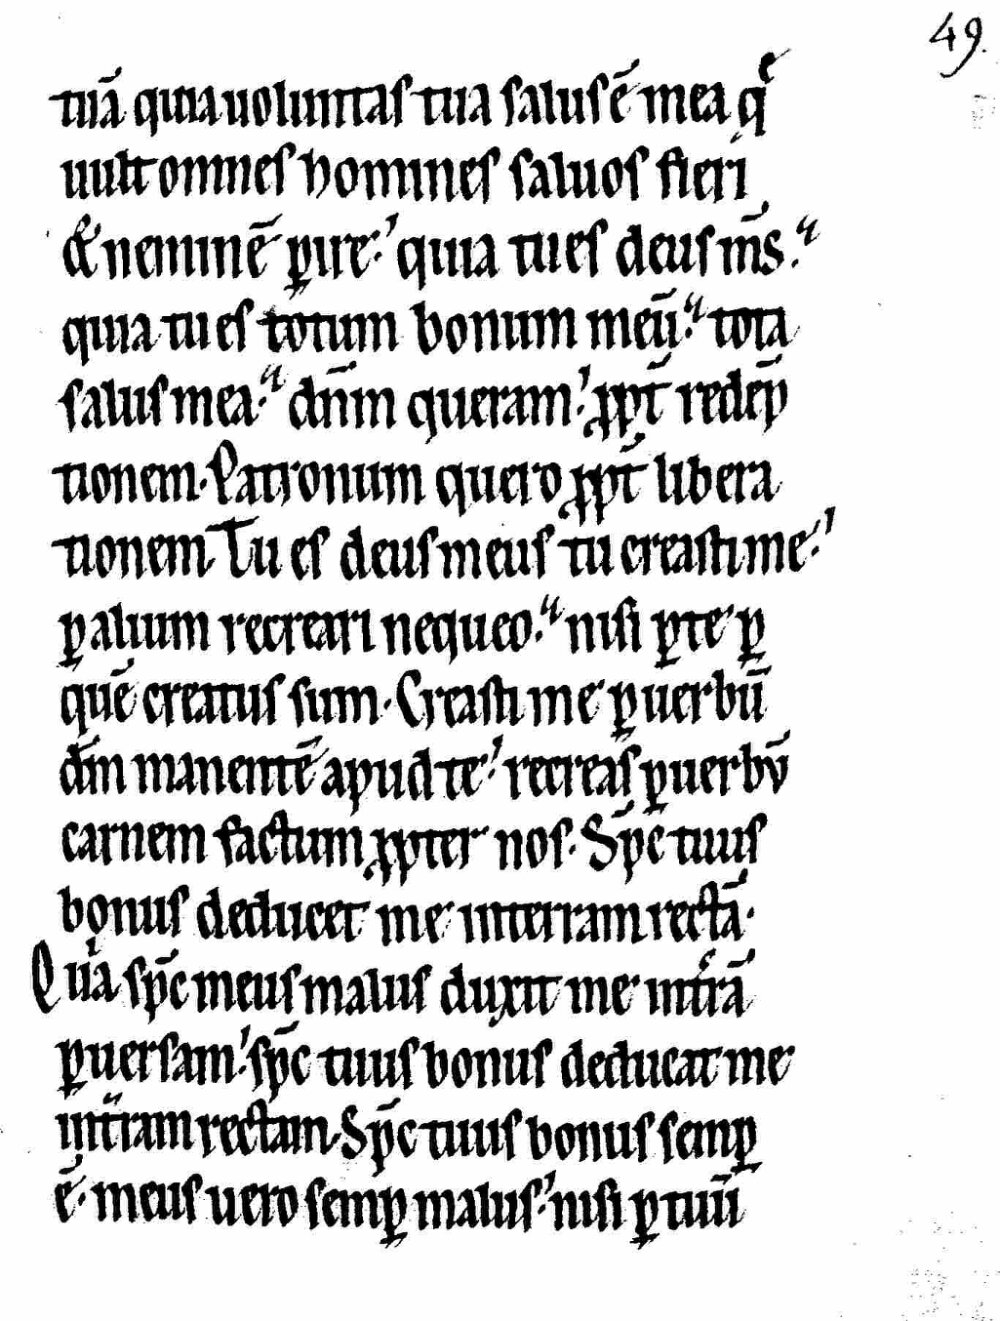 49.
tuā quia uoluntas tua salus ē mea qͤ
uult omnes homines saluos fieri
& neminē ꝑire. quia tu es deus m̄s.
quia tu es totum bonum meū. tota
salus mea. dn̄m queram. ꝓpt̄ redēp
tionem. Patronum quero ꝓpt̄ libera
tionem. Tu es deus meus tu creasti me.
ꝑ alium recreari nequeo. nisi ꝑ te ꝑ
quē creatus sum. Creasti me ꝑ uerbū
dm̄ manentē apud te. recreas ꝑ uerbū
carnem factum ꝓpter nos. Sp̄c tuus
bonus deducet me in terram rectā.
Quia sp̄c meus malus duxit me in tr̄ā
ꝑuersam. sp̄c tuus bonus deducat me
in tr̄am rectam. Sp̄c tuus bonus semꝑ
ē. meus uero semꝑ malus. nisi ꝑ tuū